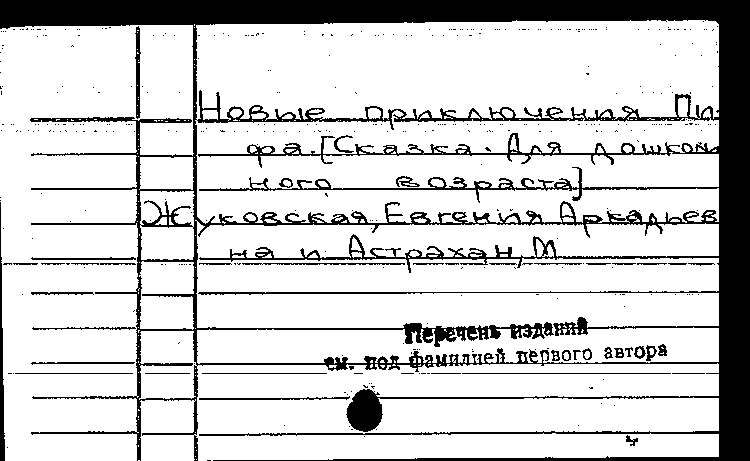 Новые приключения Пи-
фа. [Сказка. Для дошколь-
ного возраста]
Жуковская, Евгения Аркадьев
на и Астрахан, М
Перечень изданий
см. под фамилией первого автора